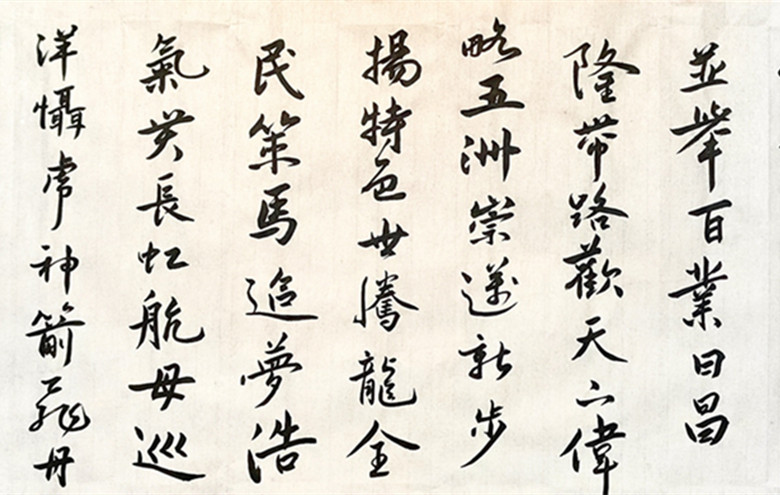 並舉百業日昌
隆帶路歡天下偉
略五洲崇邁新步
揚特色世騰龍全
民策馬追夢浩
氣貫長虹航母巡
洋懾虎神箭飛舟